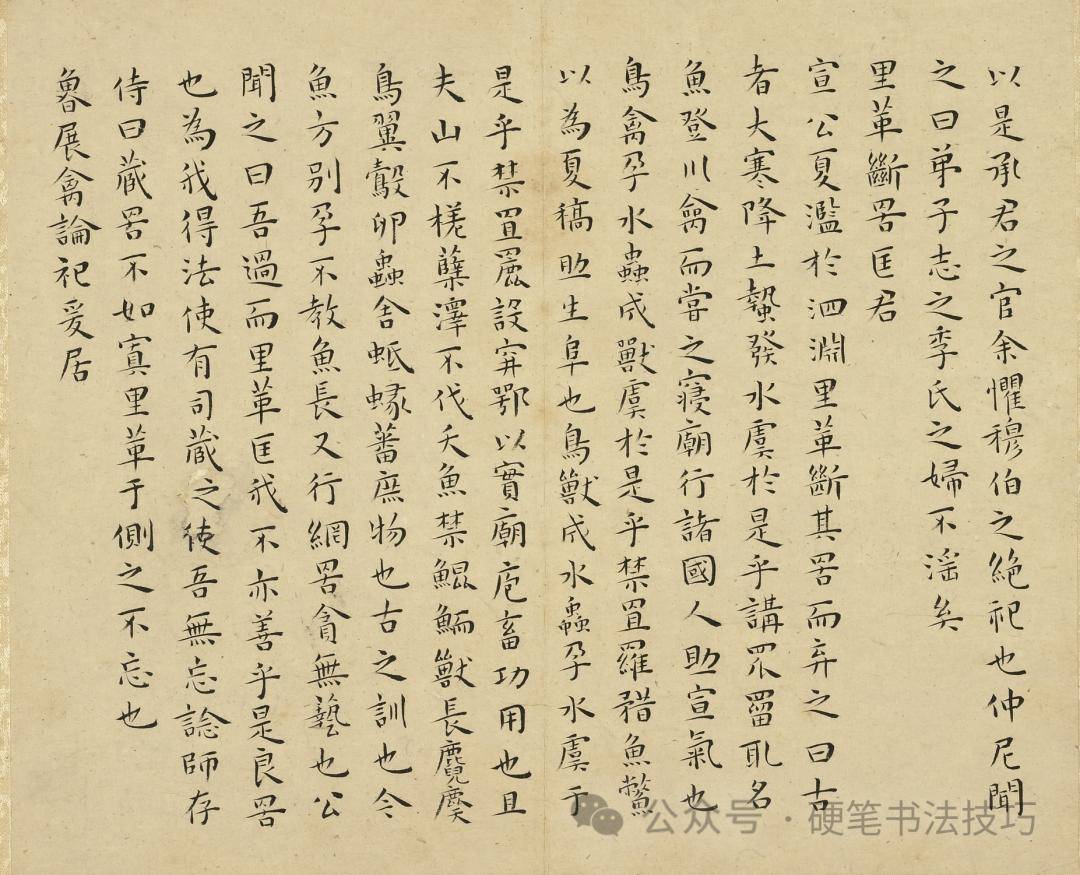 以是承君之官余懼穆伯之絕祀也仲尼聞
之曰弟子志之季氏之婦不淫矣
里革斷罟匡君
宣公夏濫於泗淵里革斷其罟而弃之曰古
者大寒降土蟄發水虞於是乎講罛罶取名
魚登川禽而嘗之寢廟行諸國人助宣氣也
鳥禽孕水蟲成獸虞於是乎禁罝羅矠魚鱉
以為夏犒助生阜也鳥獸成水蟲孕水虞于
是乎禁罝䍡設穽鄂以實廟庖畜功用也且
夫山不槎蘖澤不伐夭魚禁鯤鮞獸長麑麌
鳥翼鷇卵蟲舍蚳蝝蕃庶物也古之訓也今
魚方別孕不教魚長又行網罟貪無藝也公
聞之曰吾過而里革匡我不亦善乎是良罟
也為我得法使有司藏之使吾無忘諗師存
侍曰藏罟不如寘里革于側之不忘也
魯展禽論祀爰居
公众号·硬笔书法技巧